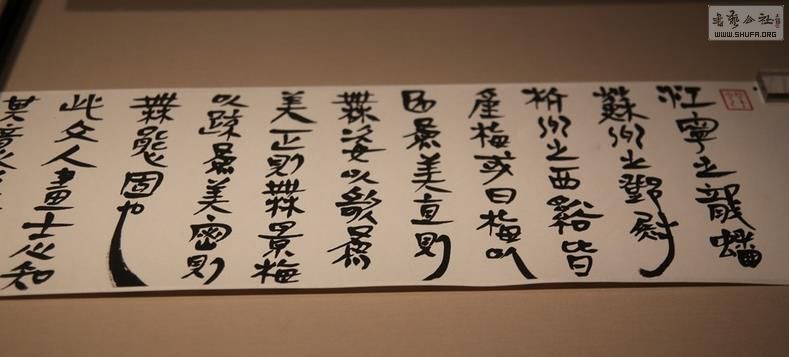 江寧之龍蟠
蘇州之鄧尉
杭州之西谿皆
產梅或曰梅以
曲為美直則
無姿以欹為
美正則無景梅
以疎為美密則
無態固也
此文人畫士心知
其意
書藝公社
WWW.SHUFA.ORG